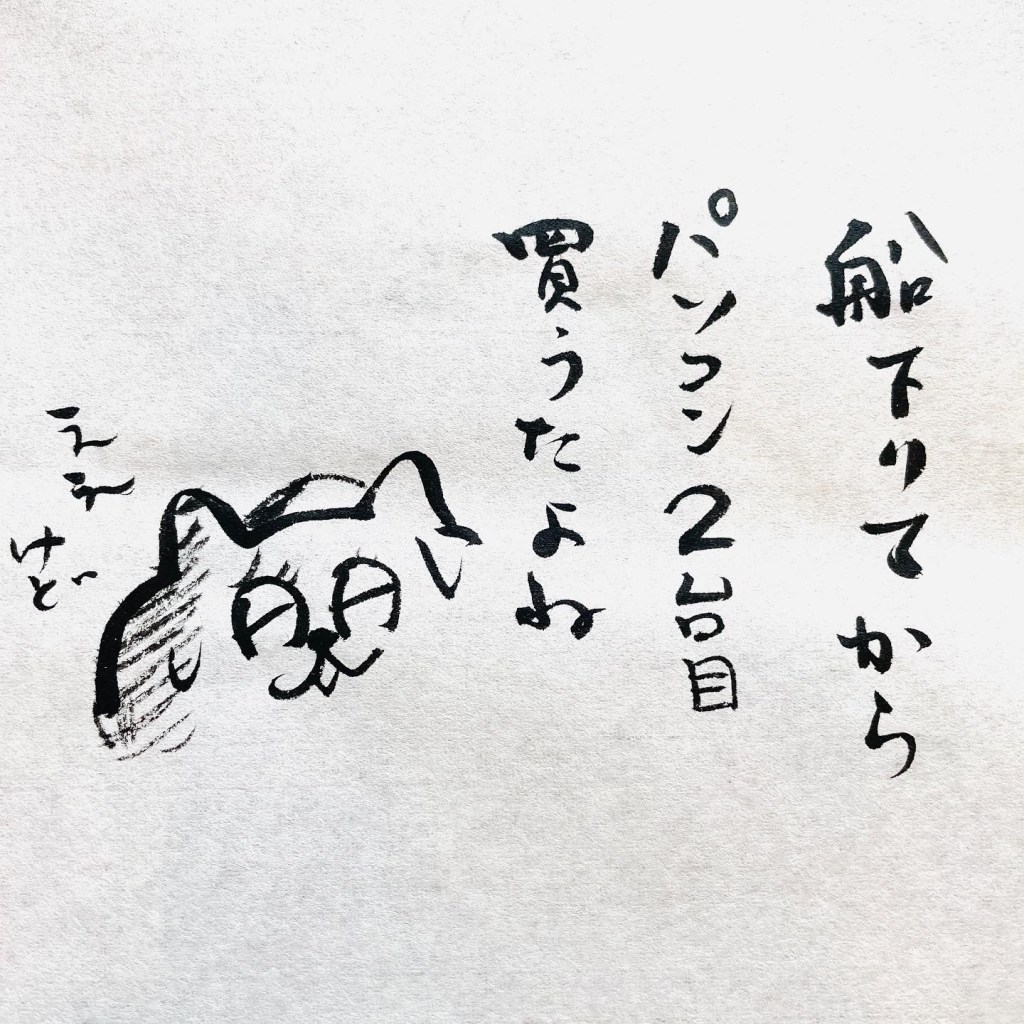 船下りてから
パソコン2台目
買うたよね
ええ
けど